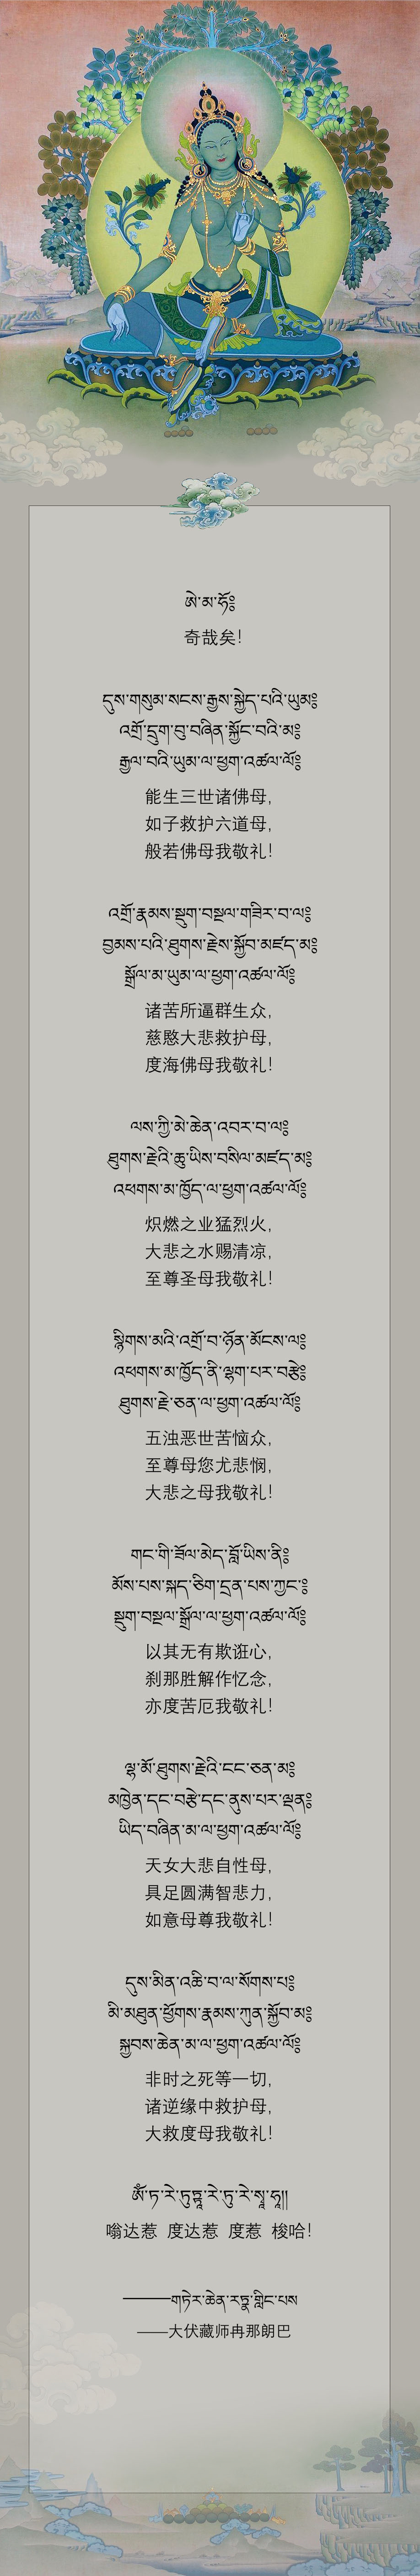 ཨེ་མ་ཧོ༔
奇哉矣!
དུས་གསུམ་སངས་རྒྱས་སྐྱེད་པའི་ཡུམ༔
འགྲོ་དྲུག་བུ་བཞིན་སྐྱོང་བའི་མ༔
རྒྱལ་བའི་ཡུམ་ལ་ཕྱག་འཚལ་ལོ༔
能生三世诸佛母,
如子救护六道母,
般若佛母我敬礼!
འགྲོ་རྣམས་སྡུག་བསྔལ་གཟིར་བ་ལ༔
བྱམས་པའི་ཐུགས་རྗེས་སྐྱོབ་མཛད་མ༔
སྒྲོལ་མ་ཡུམ་ལ་ཕྱག་འཚལ་ལོ༔
诸苦所逼群生众,
慈愍大悲救护母,
度海佛母我敬礼!
ལས་ཀྱི་མེ་ཆེན་འབར་བ་ལ༔
ཐུགས་རྗེའི་ཆུ་ཡིས་བསིལ་མཛད་མ༔
འཕགས་མ་ཁྱོད་ལ་ཕྱག་འཚལ་ལོ༔
炽燃之业猛烈火,
大悲之水赐清凉,
至尊圣母我敬礼!
སྙིགས་མའི་འགྲོ་བ་ཉོན་མོངས་ལ༔
འཕགས་མ་ཁྱོད་ནི་ལྷག་པར་བརྩེ༔
ཐུགས་རྗེ་ཅན་ལ་ཕྱག་འཚལ་ལོ༔
五浊恶世苦恼众,
至尊母您尤悲悯,
大悲之母我敬礼!
གང་གི་ཟོལ་མེད་བློ་ཡིས་ནི༔
མོས་པས་སྐད་ཅིག་དྲན་པས་ཀྱང་༔
སྡུག་བསྔལ་སྒྲོལ་ལ་ཕྱག་འཚལ་ལོ༔
以其无有欺诳心,
刹那胜解作忆念,
亦度苦厄我敬礼!
ལྷ་མོ་ཐུགས་རྗེའི་ངང་ཅན་མ༔
མཁྱེན་དང་བརྩེ་དང་ནུས་པར་ལྡན༔
ཡིད་བཞིན་མ་ལ་ཕྱག་འཚལ་ལོ༔
天女大悲自性母,
具足圆满智悲力,
如意母尊我敬礼!
དུས་མིན་འཆི་བ་ལ་སོགས་པ༔
མི་མཐུན་ཕྱོགས་རྣམས་ཀུན་སྐྱོབ་མ༔
སྐྱབས་ཆེན་མ་ལ་ཕྱག་འཚལ་ལོ༔
非时之死等一切,
诸逆缘中救护母,
大救度母我敬礼!
ཨོཾ་ཏཱ་རེ་ཏུཏྟཱ་རེ་ཏུ་རེ་སྭཱ་ཧཱ།།
嗡达惹 度达惹 度惹 梭哈!
———གཏེར་ཆེན་རཏྣ་གླིང་པས
——大伏藏师冉那朗巴